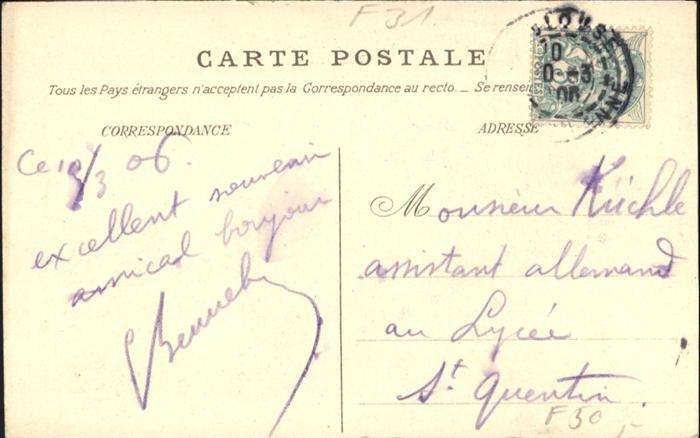 F31
CARTE POSTALE
Tous les Pays étrangers n'acceptent pas la Correspondance au recto._ Se rensei
CORRESPONDANCE
ADRESSE
Ce 10/3 06.
excellent souvenir
amical bonjour
Monsieur Küchle
assistant allemand
au Lycée
St Quentin
F30